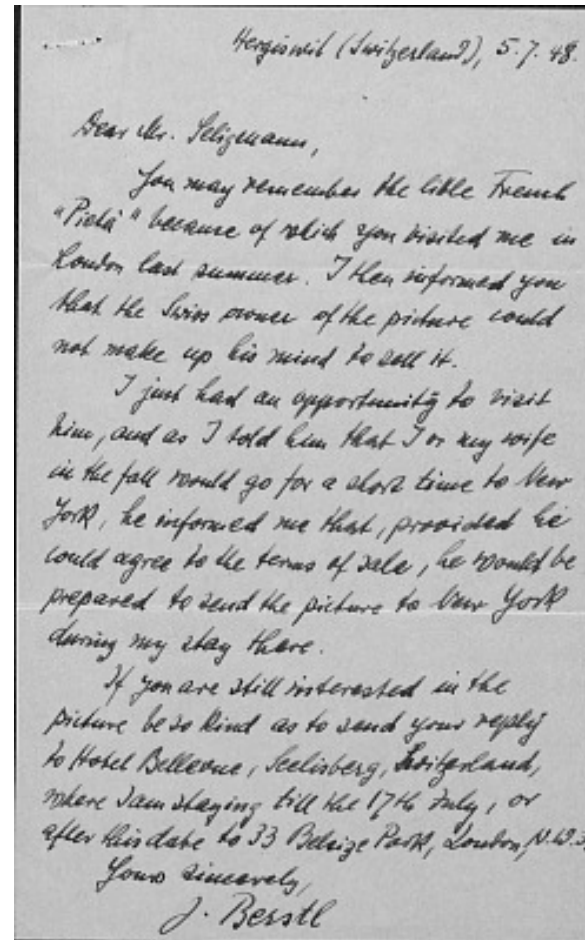 Hergiswil (Switzerland), 5.7.48.
Dear Mr. Seligmann,
You may remember the little French
"Pietà" because of which you visited me in
London last summer. I then informed you
that the Swiss owner of the picture could
not make up his mind to sell it.
I just had an opportunity to visit
him, and as I told him that I or my wife
in the fall would go for a short time to New
York, he informed me that, provided he
could agree to the terms of sale, he would be
prepared to send the picture to New York
during my stay there.
If you are still interested in the
picture be so kind as to send your reply
to Hotel Bellevue, Seelisberg, Switzerland,
where I am staying till the 17th July, or
after this date to 33 Belsize Park, London, N.W.3.
Yours sincerely,
J. Berstl